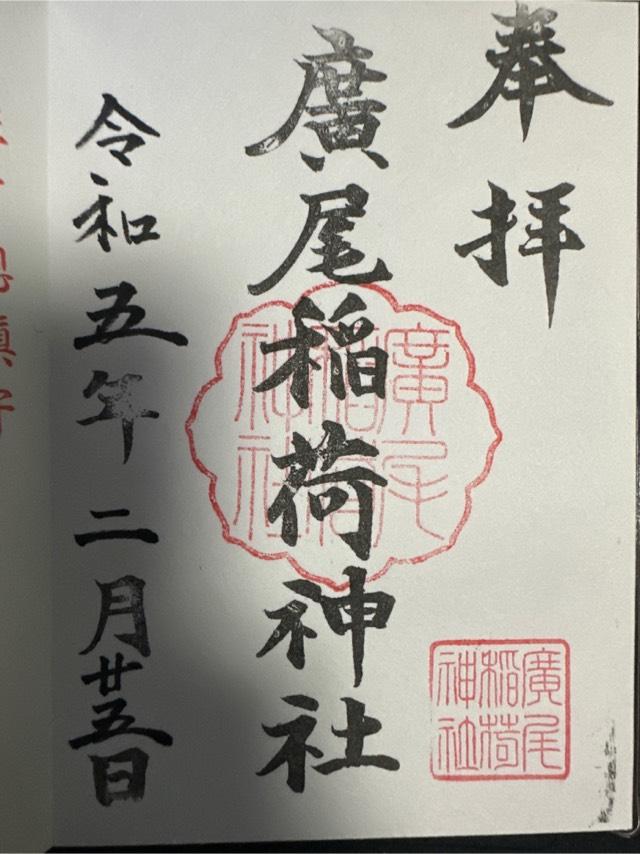 奉拝
廣尾稲荷神社
令和五年二月廿五日
廣尾稲荷神社
廣尾稲荷神社